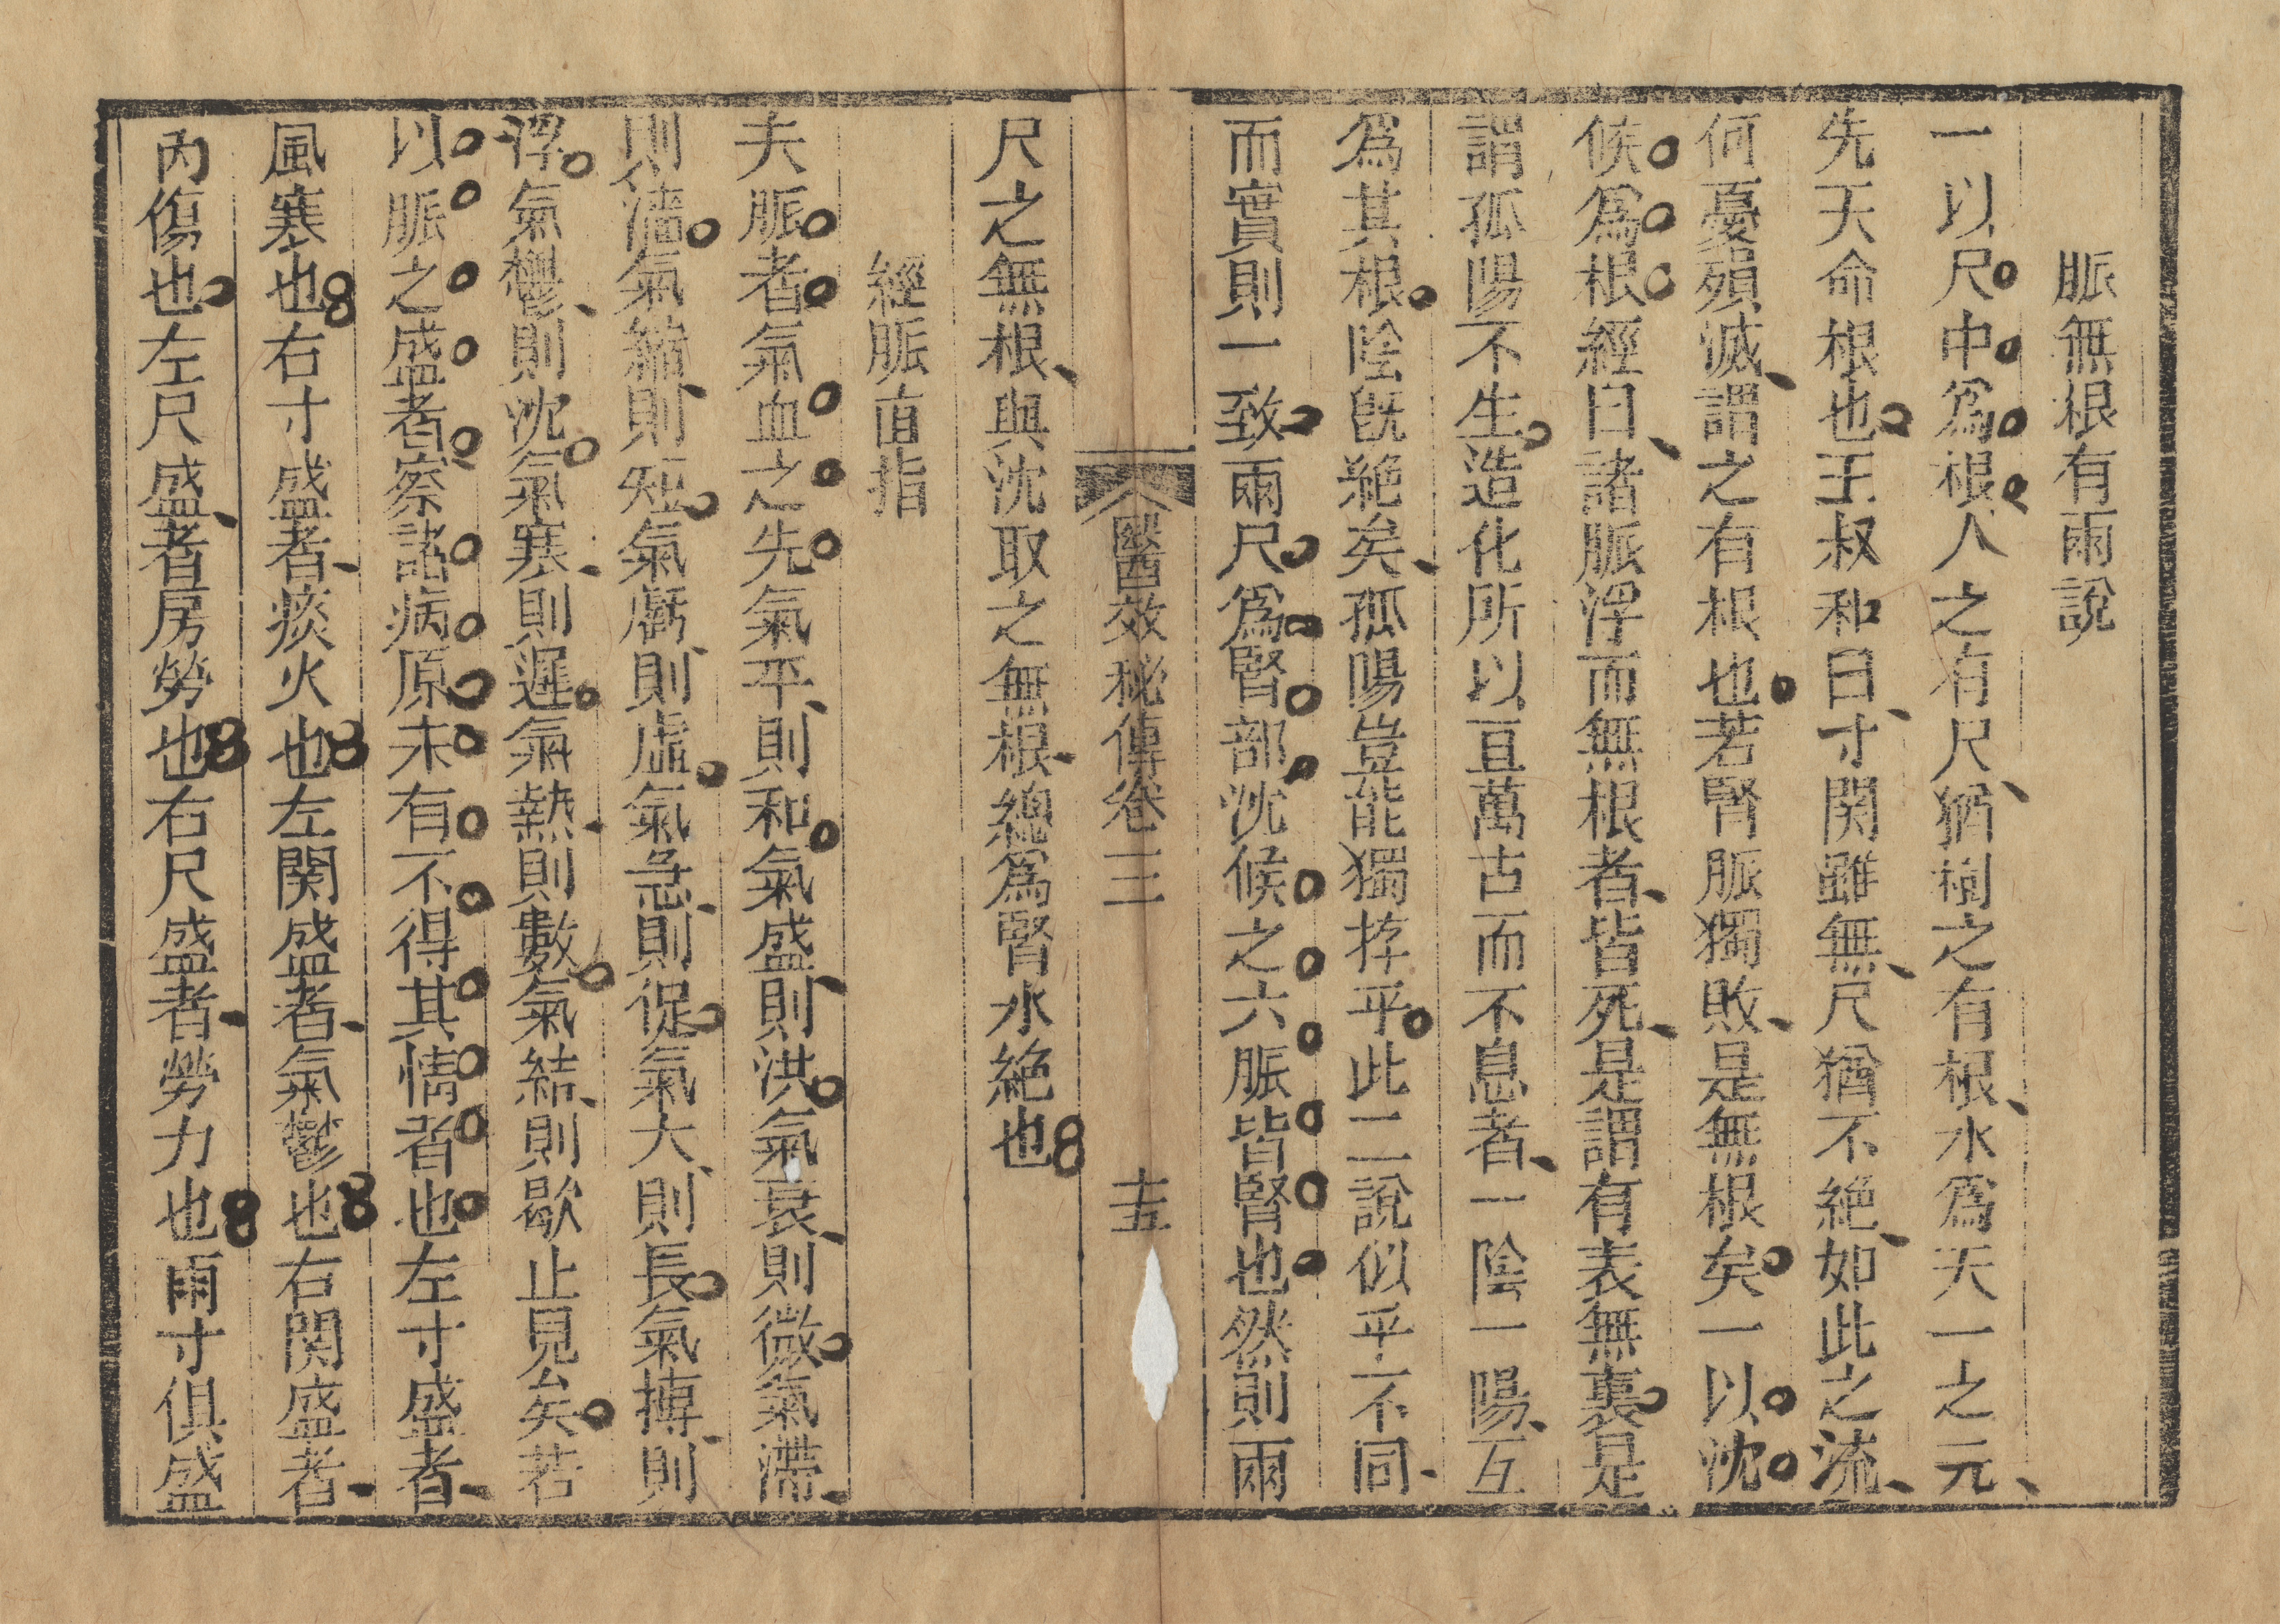 脈無根有兩說
一以尺中爲根人之有尺猶樹之有根水爲天一之元
先天命根也王叔和曰寸関雖無尺猶不絶如此之流
何憂殞滅謂之有根也若腎脈獨敗是無根矣一以沈
候爲根經曰諸脈浮而無根者皆死是謂有表無裏是
謂孤陽不生造化所以亘萬古而不息者一陰一陽互
爲其根陰旣絶矣孤陽豈能獨存乎此二說似乎不同
而實則一致兩尺爲腎部沈候之六脈皆腎也然則兩
醫效秘傳卷三
十五
尺之無根與沈取之無根總爲腎水絶也
經脈直指
夫脈者氣血之先氣平則和氣盛則洪氣衰則微氣滯
則濇氣縮則短氣虧則虛氣急則促氣大則長氣摶則
浮氣欝則沈氣寒則遲氣熱則數氣結則歇止見矣若
以脈之盛者察諸病原未有不得其情者也左寸盛者
風寒也右寸盛者痰火也左関盛者氣鬱也右関盛者
內傷也左尺盛者房勞也右尺盛者勞力也兩寸俱盛